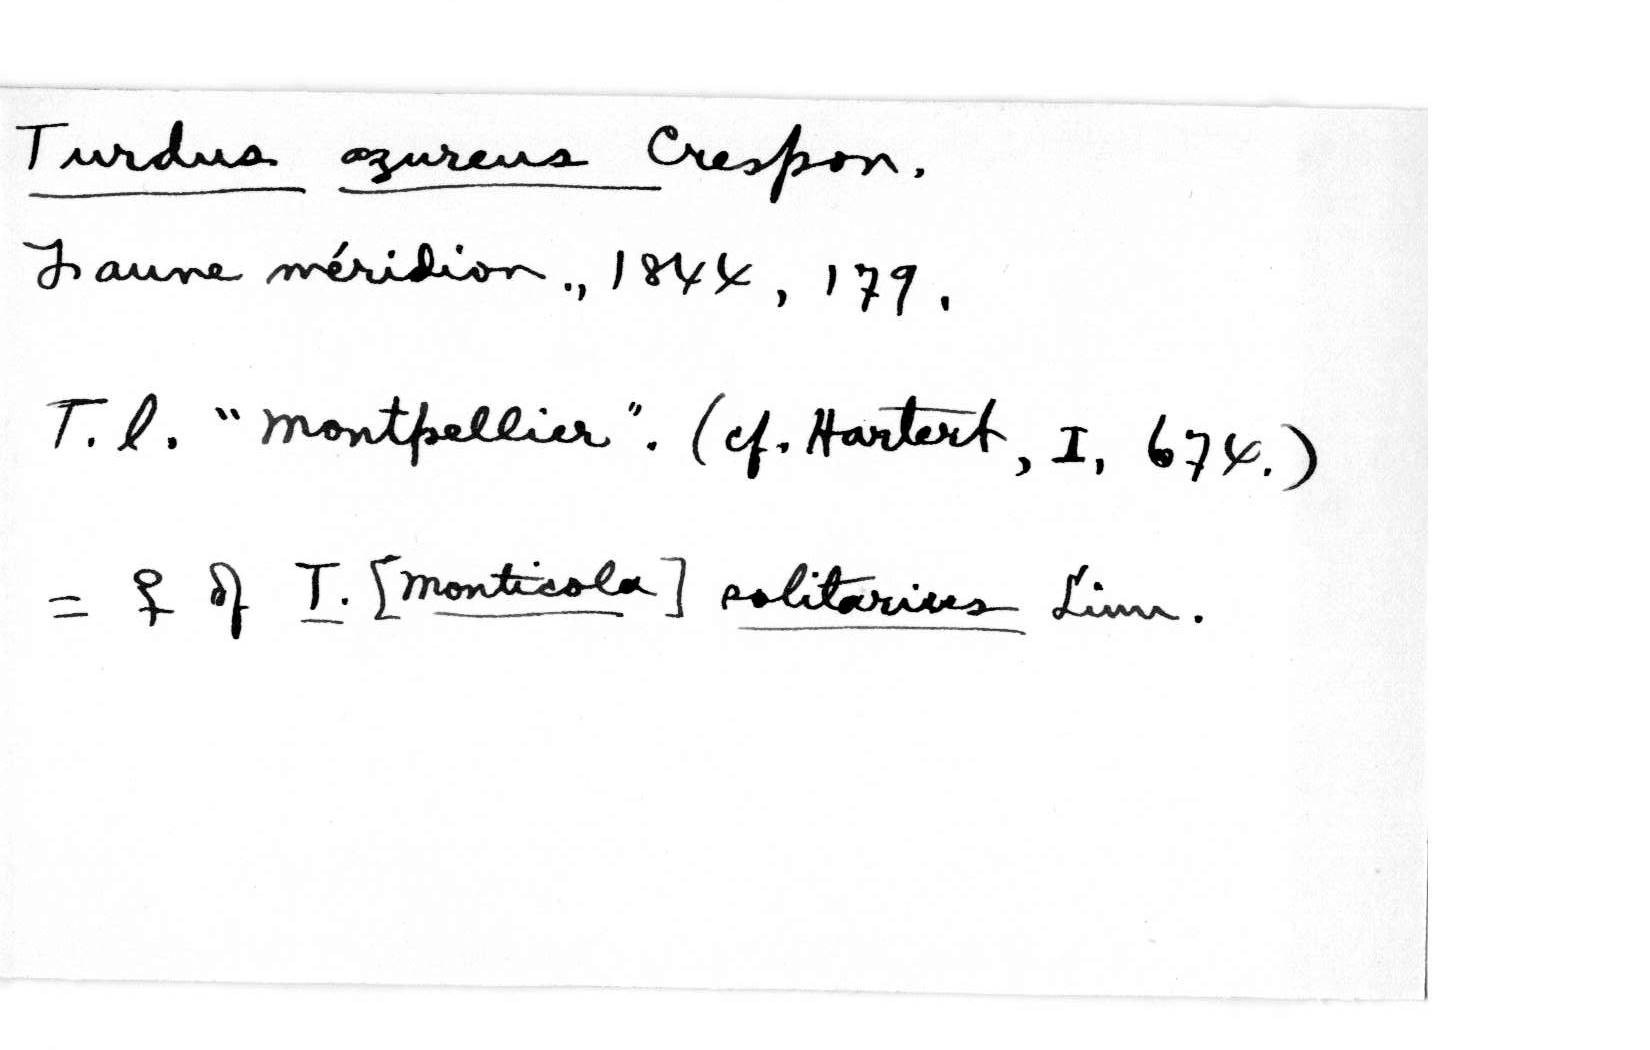 Turdus azureus Crespon.
Faune méridion., 1844, 179.
T. l. "Montpellier". (cf. Hartert, I, 674.)
= ♀ of T. [Monticola] solitarius Linn.